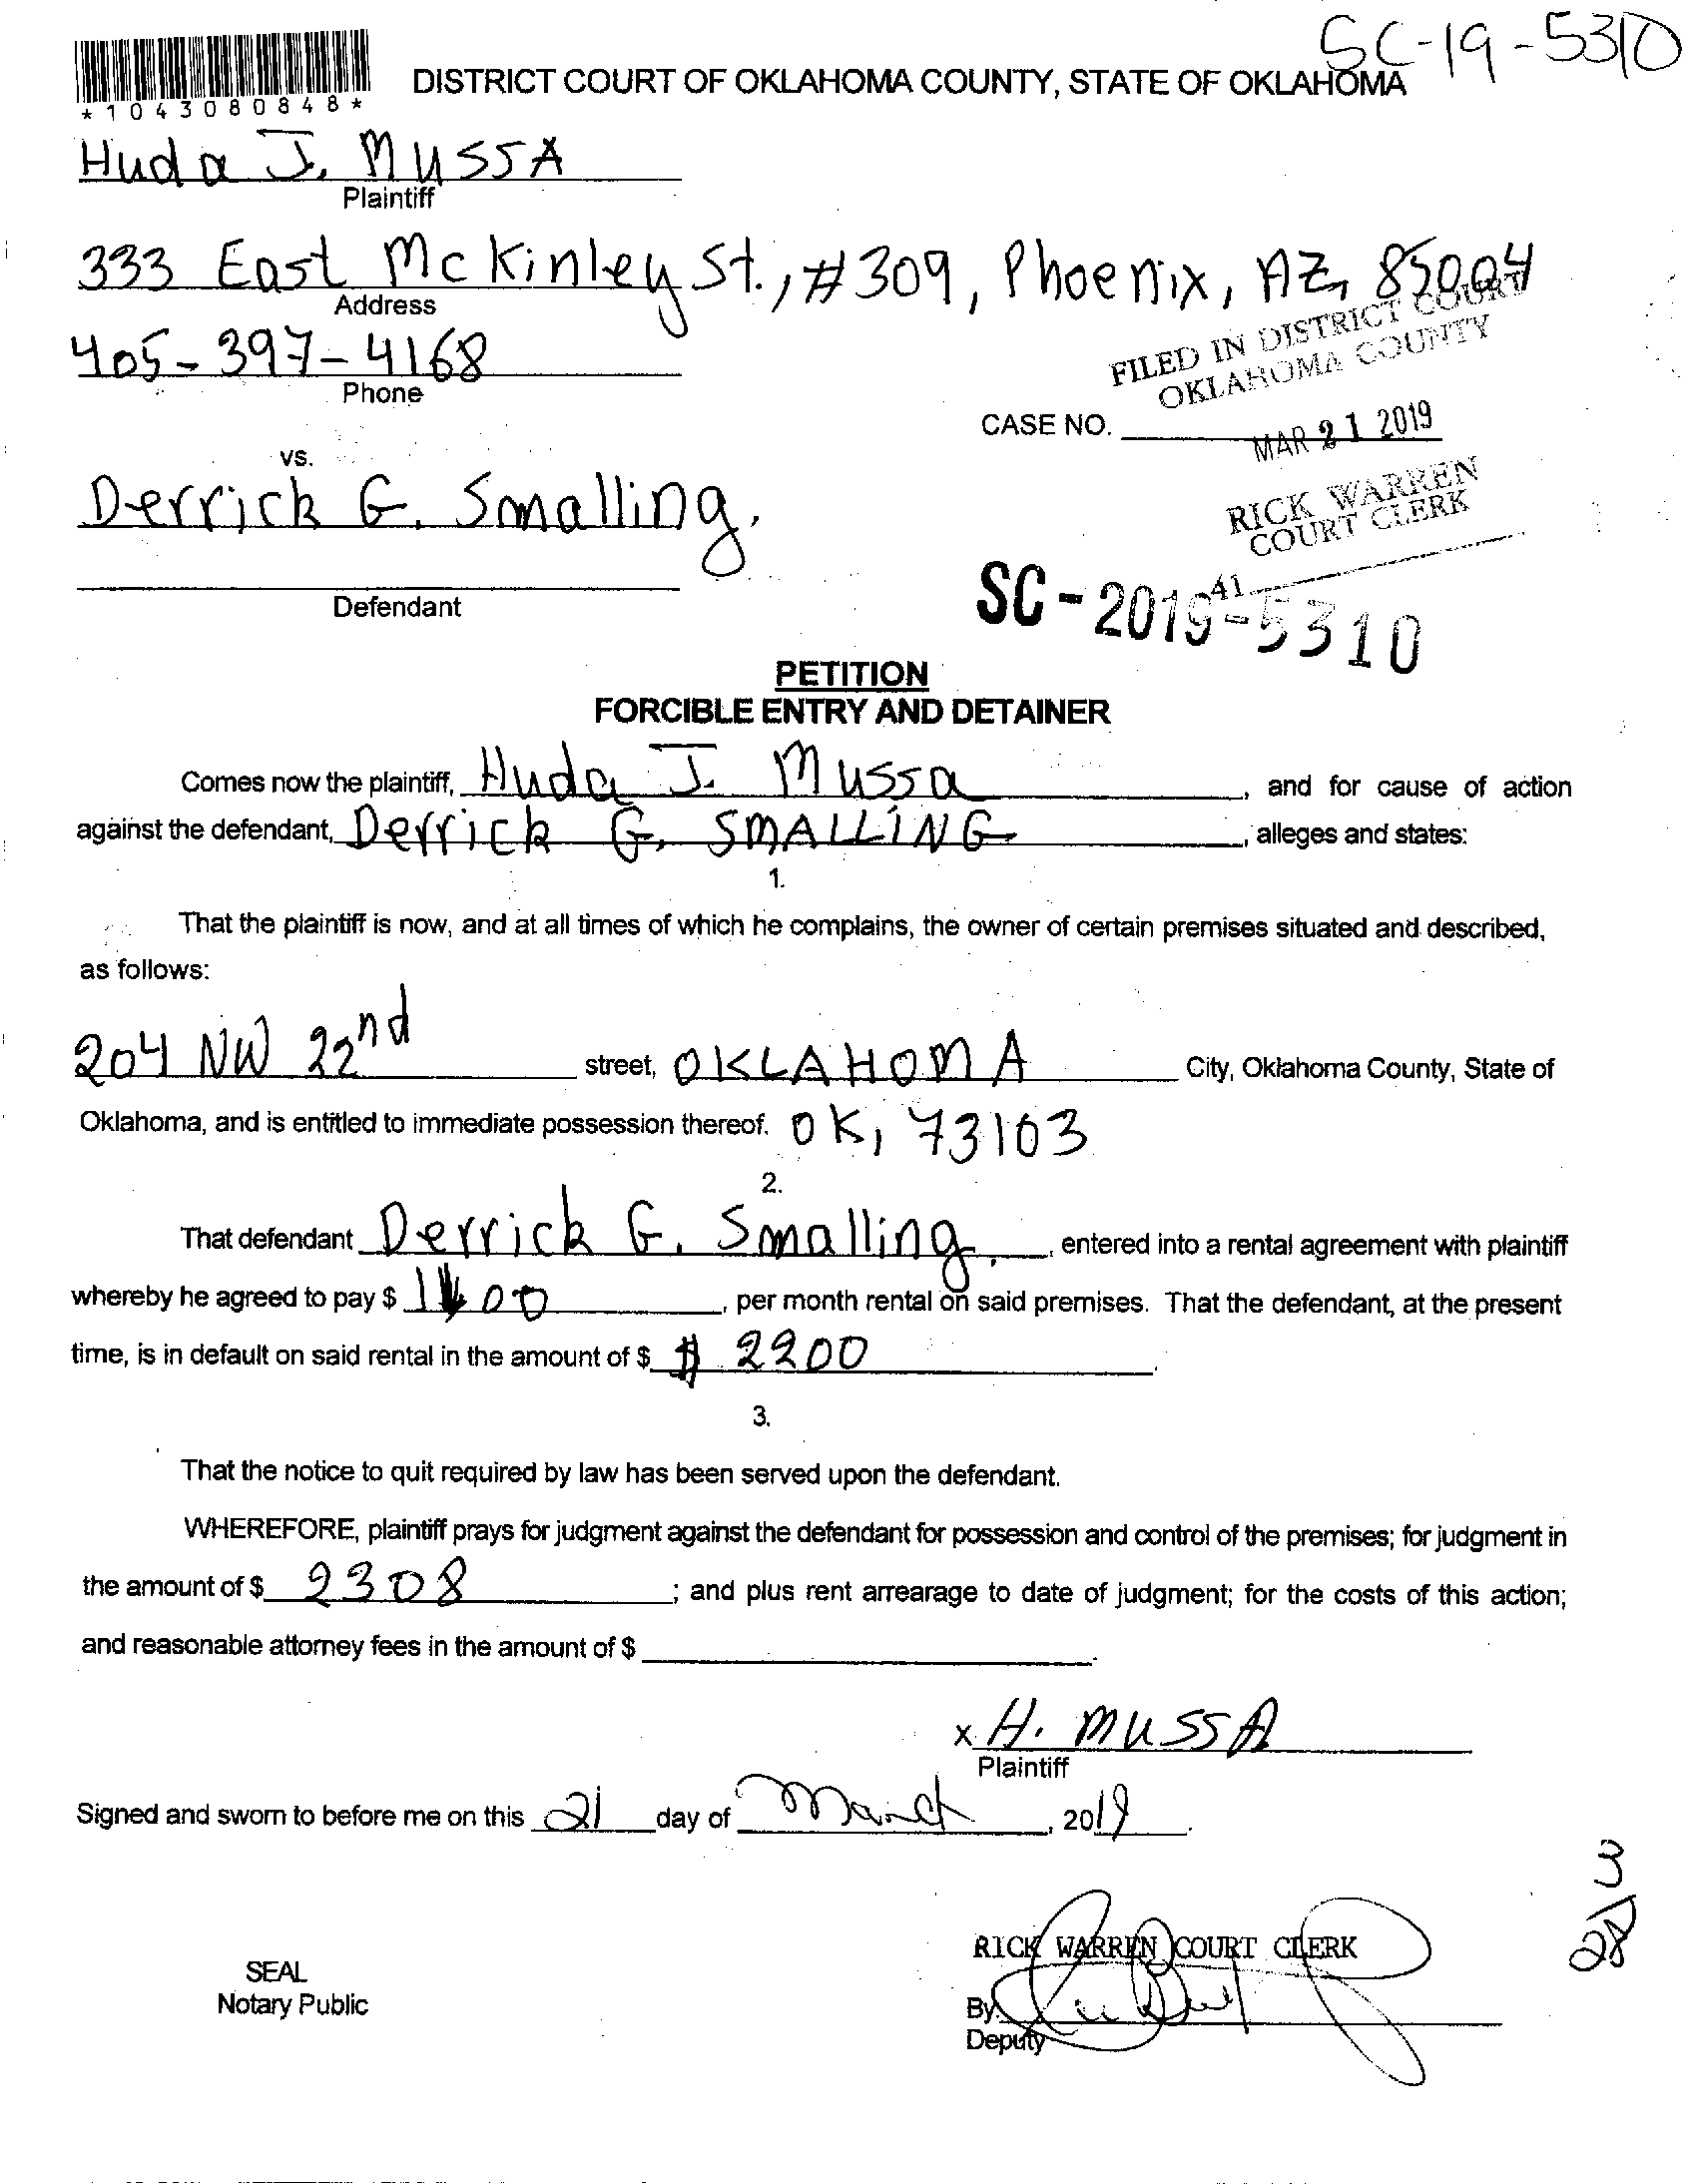 SC-19-5310
DISTRICT COURT OF OKLAHOMA COUNTY, STATE OF OKLAHOMA
*1043080848*
Huda J. MUSSA
Plaintiff
333 East McKinley St., #309, Phoenix, AZ, 85004
Address
405-397-4168
Phone
FILED IN DISTRICT COURT
OKLAHOMA COUNTY
CASE NO.
MAR 21 2019
vs.
RICK WARREN
COURT CLERK
Derrick G. Smalling.
41
Defendant
SC-2019-5310
PETITION
FORCIBLE ENTRY AND DETAINER
Comes now the plaintiff, Huda J. Mussa, and for cause of action
against the defendant, Derrick G. SMALLING, alleges and states:
1.
That the plaintiff is now, and at all times of which he complains, the owner of certain premises situated and described,
as follows:
204 NW 22nd street, OKLAHOMA City, Oklahoma County, State of
Oklahoma, and is entitled to immediate possession thereof. OK, 73103
2.
That defendant Derrick G. Smalling., entered into a rental agreement with plaintiff
whereby he agreed to pay $ 1100, per month rental on said premises. That the defendant, at the present
time, is in default on said rental in the amount of $ $ 2200.
3.
That the notice to quit required by law has been served upon the defendant.
WHEREFORE, plaintiff prays for judgment against the defendant for possession and control of the premises; for judgment in
the amount of $ 2308; and plus rent arrearage to date of judgment; for the costs of this action;
and reasonable attorney fees in the amount of $.
x H. MUSSA
Plaintiff
Signed and sworn to before me on this 21 day of March, 2019.
RICK WARREN COURT CLERK
SEAL
Notary Public
By:
Deputy